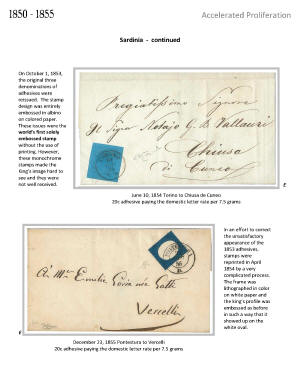 1850 - 1855
Accelerated Proliferation
Sardinia - continued
On October 1, 1853,
the original three
denominations of
adhesives were
reissued. The stamp
design was entirely
embossed in albino
on colored paper.
These issues were the
world's first solely
embossed stamp
without the use of
printing. However,
these monochrome
stamps made the
King's image hard to
see and they were
not well received.
Pregiatissimo Signore
Il Sigr Notajo G. B. Vallauri
Chiusa
di Cuneo
E
June 10, 1854 Torino to Chiusa de Cuneo
20c adhesive paying the domestic letter rate per 7.5 grams
In an effort to correct
the unsatisfactory
appearance of the
1853 adhesives,
stamps were
reprinted in April
1854 by a very
complicated process.
The frame was
lithographed in color
on white paper and
the king's profile was
embossed as before
in such a way that it
showed up on the
white oval.
Vercelli
F
December 23, 1855 Pontestura to Vercelli
20c adhesive paying the domestic letter rate per 7.5 grams